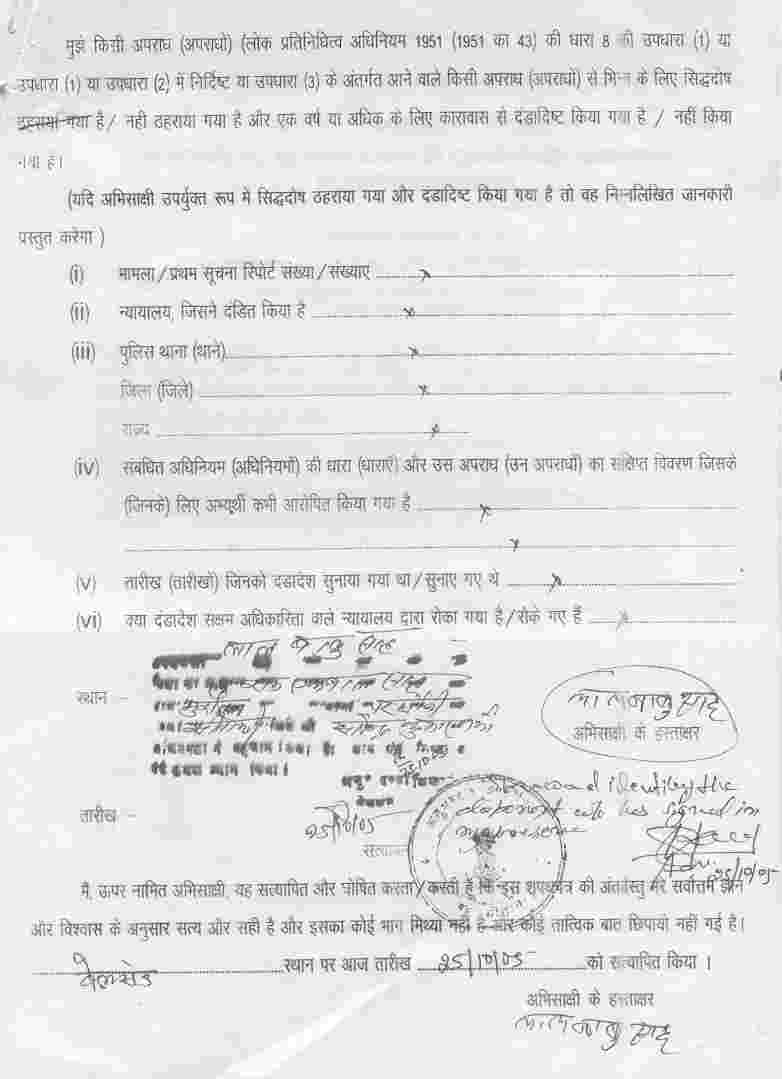 मुझे किसी अपराध (अपराधों) (लोक प्रतिनिधित्व अधिनियम 1951 (1951 का 43) की धारा 8 की उपधारा (1) या
उपधारा (1) या उपधारा (2) में निर्दिष्ट या उपधारा (3) के अंतर्गत आने वाले किसी अपराध (अपराधों) से भिन्न के लिए सिद्धदोष
ठहराया गया है / नही ठहराया गया है और एक वर्ष या अधिक के लिए कारावास से दंडादिष्ट किया गया है / नहीं किया
गया है।
(यदि अभिसाक्षी उपर्युक्त रूप मे सिद्धदोष ठहराया गया और दंडादिष्ट किया गया है तो वह निम्नलिखित जानकारी
प्रस्तुत करेगा )
(i) मामला / प्रथम सूचना रिपोर्ट संख्या / संख्याएं ........ x
(ii) न्यायालय, जिसने दंडित किया है ........ x
(iii) पुलिस थाना (थाने) ........ x
जिला (जिले) ........ x
राज्य ........ x
(iv) संबंधित अधिनियम (अधिनियमों) की धारा (धाराएँ) और उस अपराध (उन अपराधों) का संक्षिप्त विवरण जिसके
(जिनके) लिए अभ्यर्थी कभी आरोपित किया गया है ........ x
........ x
(v) तारीख (तारीखों) जिनको दंडादेश सुनाया गया था / सुनाए गए थे ........ x
(vi) क्या दंडादेश सक्षम अधिकारिता वाले न्यायालय द्वारा रोका गया है / रोके गए हैं ........ x
लाल बाबु साह
स्थान -
लालबाबु साह
अभिसाक्षी के हस्ताक्षर
25/10/05
and identify the
deponent who has signed in
my presence
तारीख -
25/10/05
25/10/05
सत्यापन
मै, ऊपर नामित अभिसाक्षी, यह सत्यापित और घोषित करता / करती हूँ कि इस शपथपत्र की अंतर्वस्तु मेरे सर्वोत्तम ज्ञान
और विश्वास के अनुसार सत्य और सही है और इसका कोई भाग मिथ्या नहीं है और कोई तात्विक बात छिपायी नहीं गई है।
वेलसंड ........ स्थान पर आज तारीख ....25/10/05.... को सत्यापित किया ।
अभिसाक्षी के हस्ताक्षर
लालबाबु साह